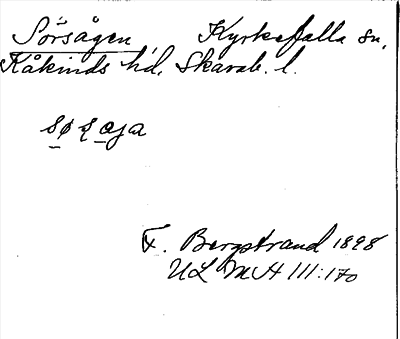 Sörsågen Kyrkefalla sn,
Kåkinds hd, Skarab. l.
F. Bergstrand 1898
ULMA 111:170